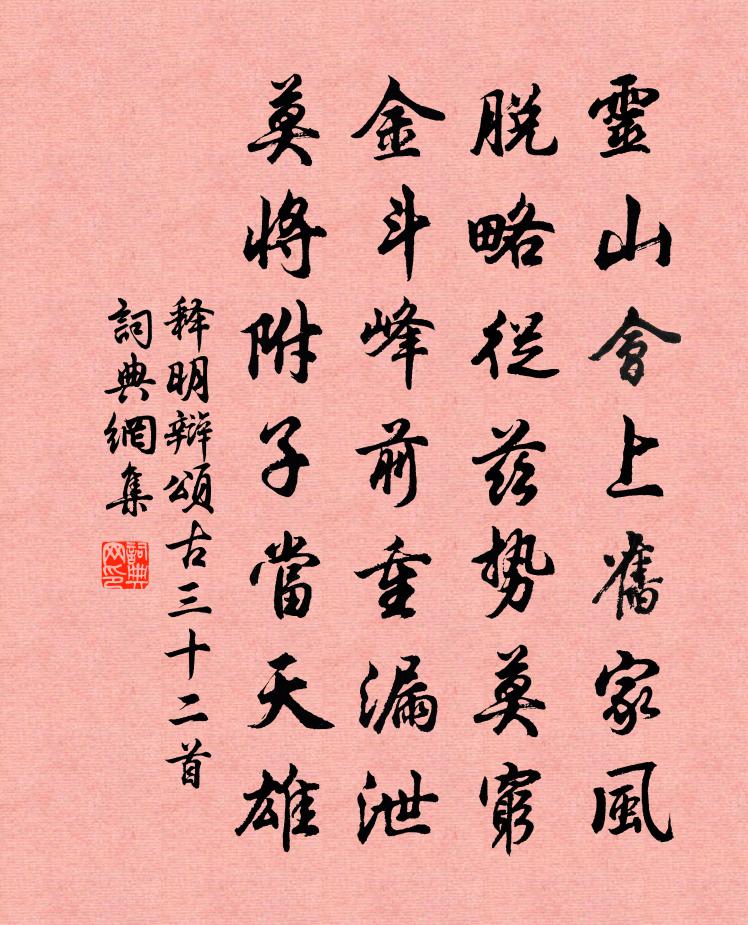 靈山會上舊家風
脫略從茲勢莫窮
金斗峰前重漏泄
莫將附子當天雄
释明辯頌古三十二首
詞典網集
詞典网印